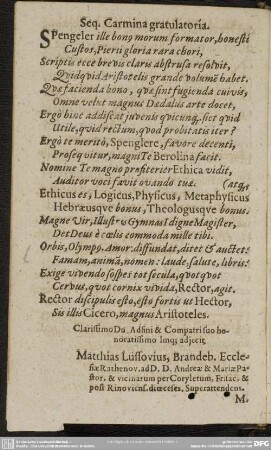 Seq. Carmina gratulatoria.
SPengeler ille bonq morum formator, honesti
Custos, Pierii gloria rara chori,
Scriptis ecce brevis claris abstrusa resolvit,
Qvidqvid Aristotelis grande volumē habet.
Qvæ facienda bono, qvæ sint fugienda cuivis,
Omne velut magnus Dædalus arte docet,
Ergò hinc addiscat juvenis qvicunq; sict qvid
Utile, qvid rectum, qvod probitatis iter?
Ergò te meritò, Spenglere, favore decenti,
Proseqvitur, magni Te Berolina facit.
Nomine Te magno profiterier Ethica vidit,
Auditor voci favit ovando tuæ. (atq;
Ethicus es, Logicus, Physicus, Metaphysicus
Hebræusqve bonus, Theologusqve bonus.
Magne Vir, Illustris Gymnasî digne Magister,
Det Deus è cœlis commoda mille tibi.
Orbis, Olympo, Amor, diffundat, ditet & auctet:
Famam, animā, nomen: laude, salute, libris.
Exige vivendo sospes tot secula, qvot qvot
Cervus, qvot cornix vivida, Rector, agit.
Rector discipulis esto, esto fortis ut Hector,
Sis illis Cicero, magnus Aristoteles.
Clarissimo Dn. Adfini & Compatri suo ho-
noratissimo lmq; adjecit
Matthias Lussovius, Brandeb. Eccle-
siæ Rathenov. ad D. D. Andreæ & Mariæ Pa-
stor, & vicinarum per Coryletum, Friſac. &
post Rinoviens. diœceses, Superattendens.
M.